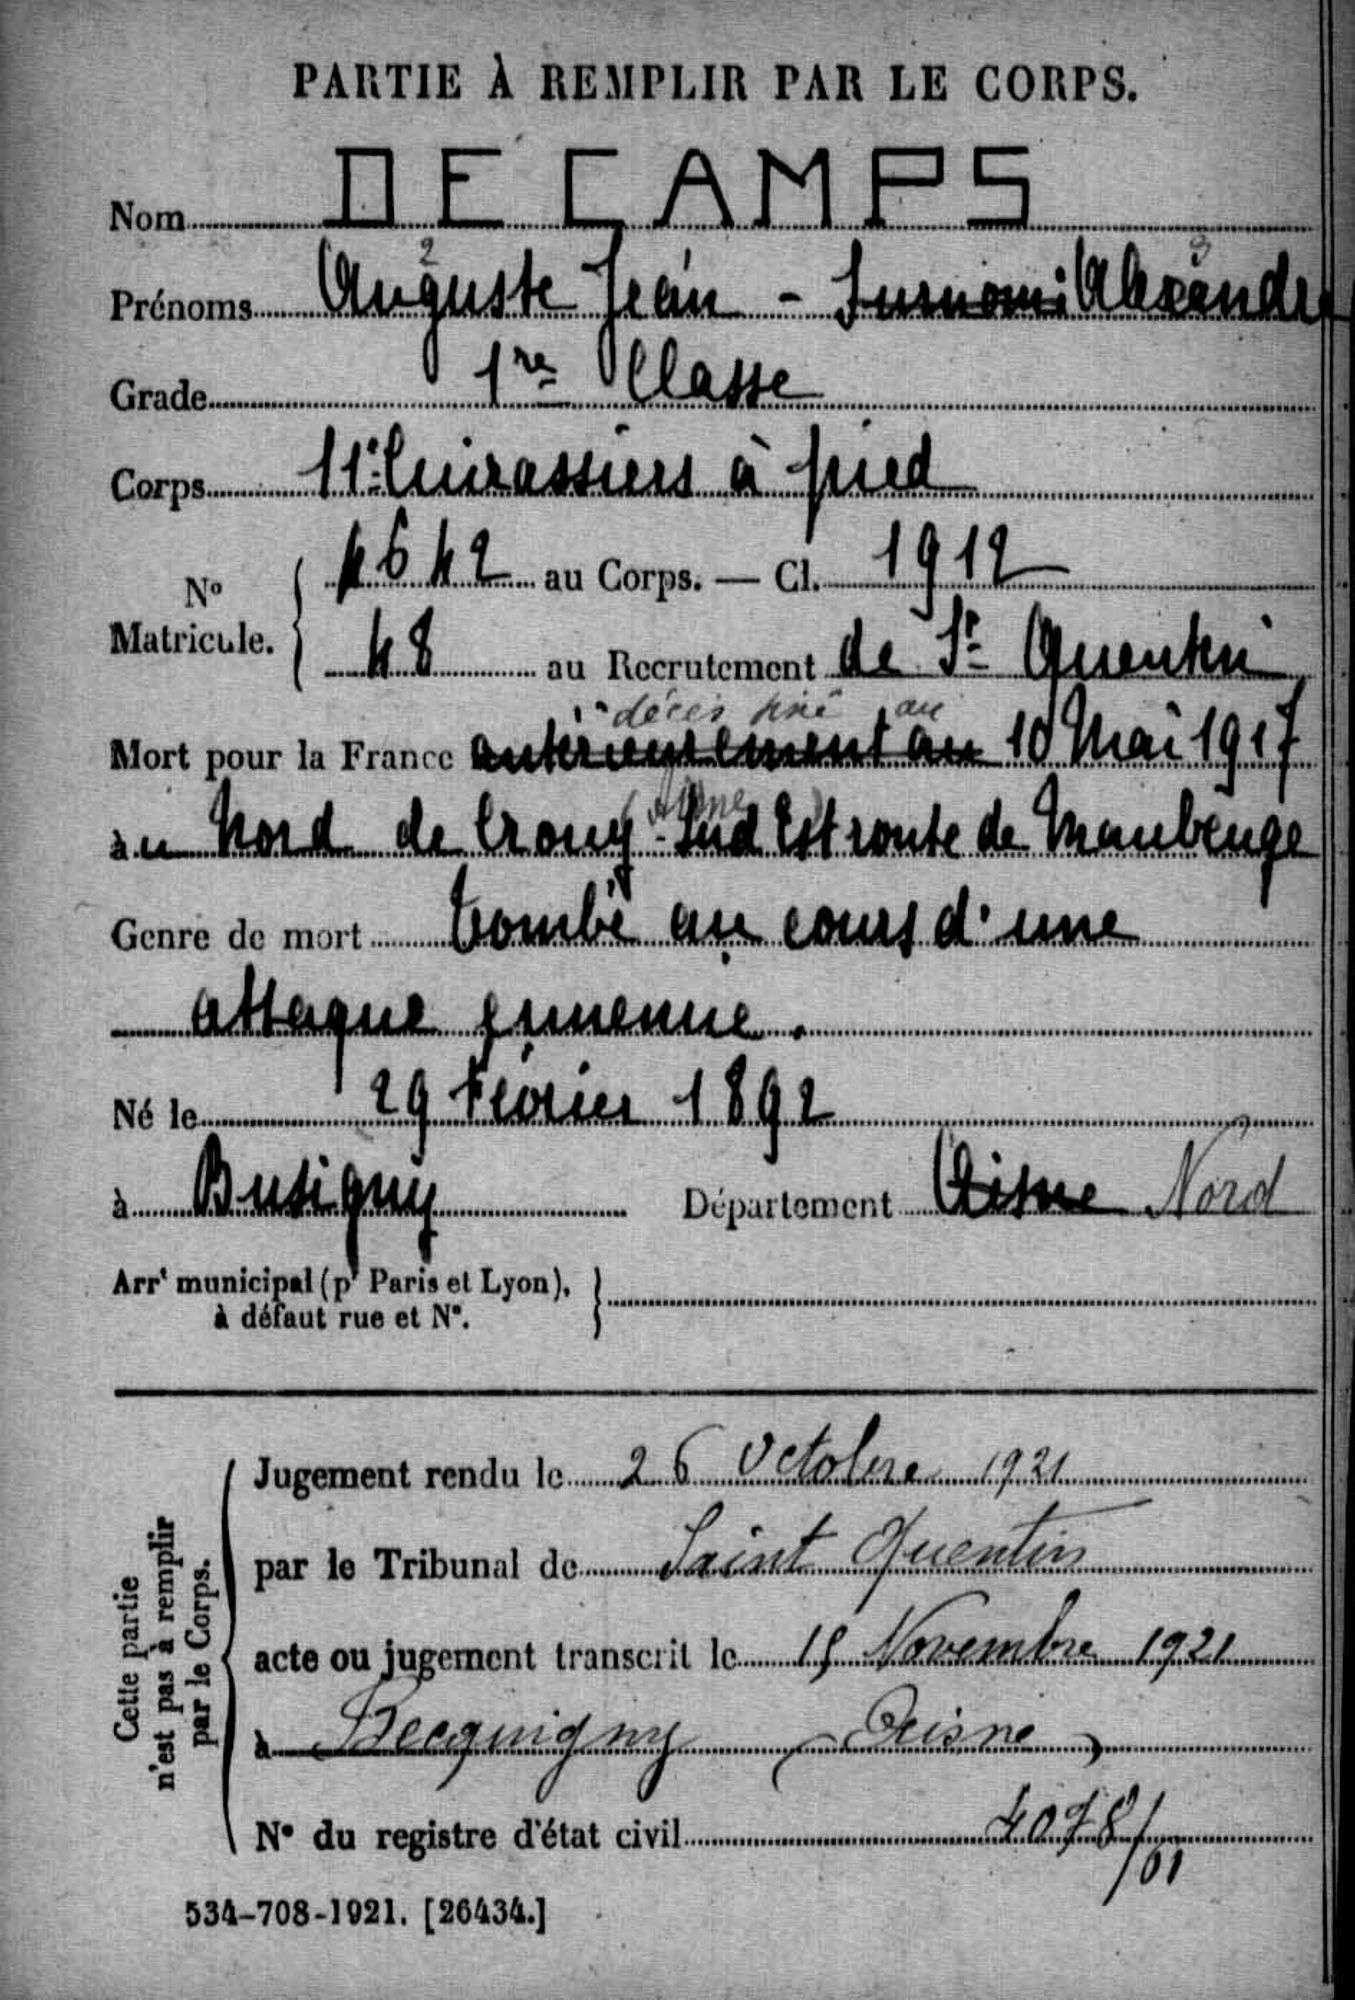 PARTIE À REMPLIR PAR LE CORPS.
Nom DECAMPS
2 3
Prénoms Auguste Jean - Surnom: Alexandre
Grade 1re Classe
Corps 11e Cuirassiers à pied
No Matricule. 4642 au Corps. — Cl. 1912
48 au Recrutement de St Quentin
décès fixé au
Mort pour la France antérieurement au 10 Mai 1917
(Aisne)
au Nord de Crouy - Sud Est route de Maubeuge
Genre de mort tombé au cours d'une
attaque ennemie.
Né le 29 Février 1892
à Busigny Département Aisne Nord
Arrt municipal (pr Paris et Lyon),
à défaut rue et No.
Cette partie
n'est pas à remplir
par le Corps.
Jugement rendu le 26 Octobre 1921
par le Tribunal de Saint Quentin
acte ou jugement transcrit le 15 Novembre 1921
à Becquigny (Aisne)
No du registre d'état civil 4078/01
534-708-1921. [26434.]